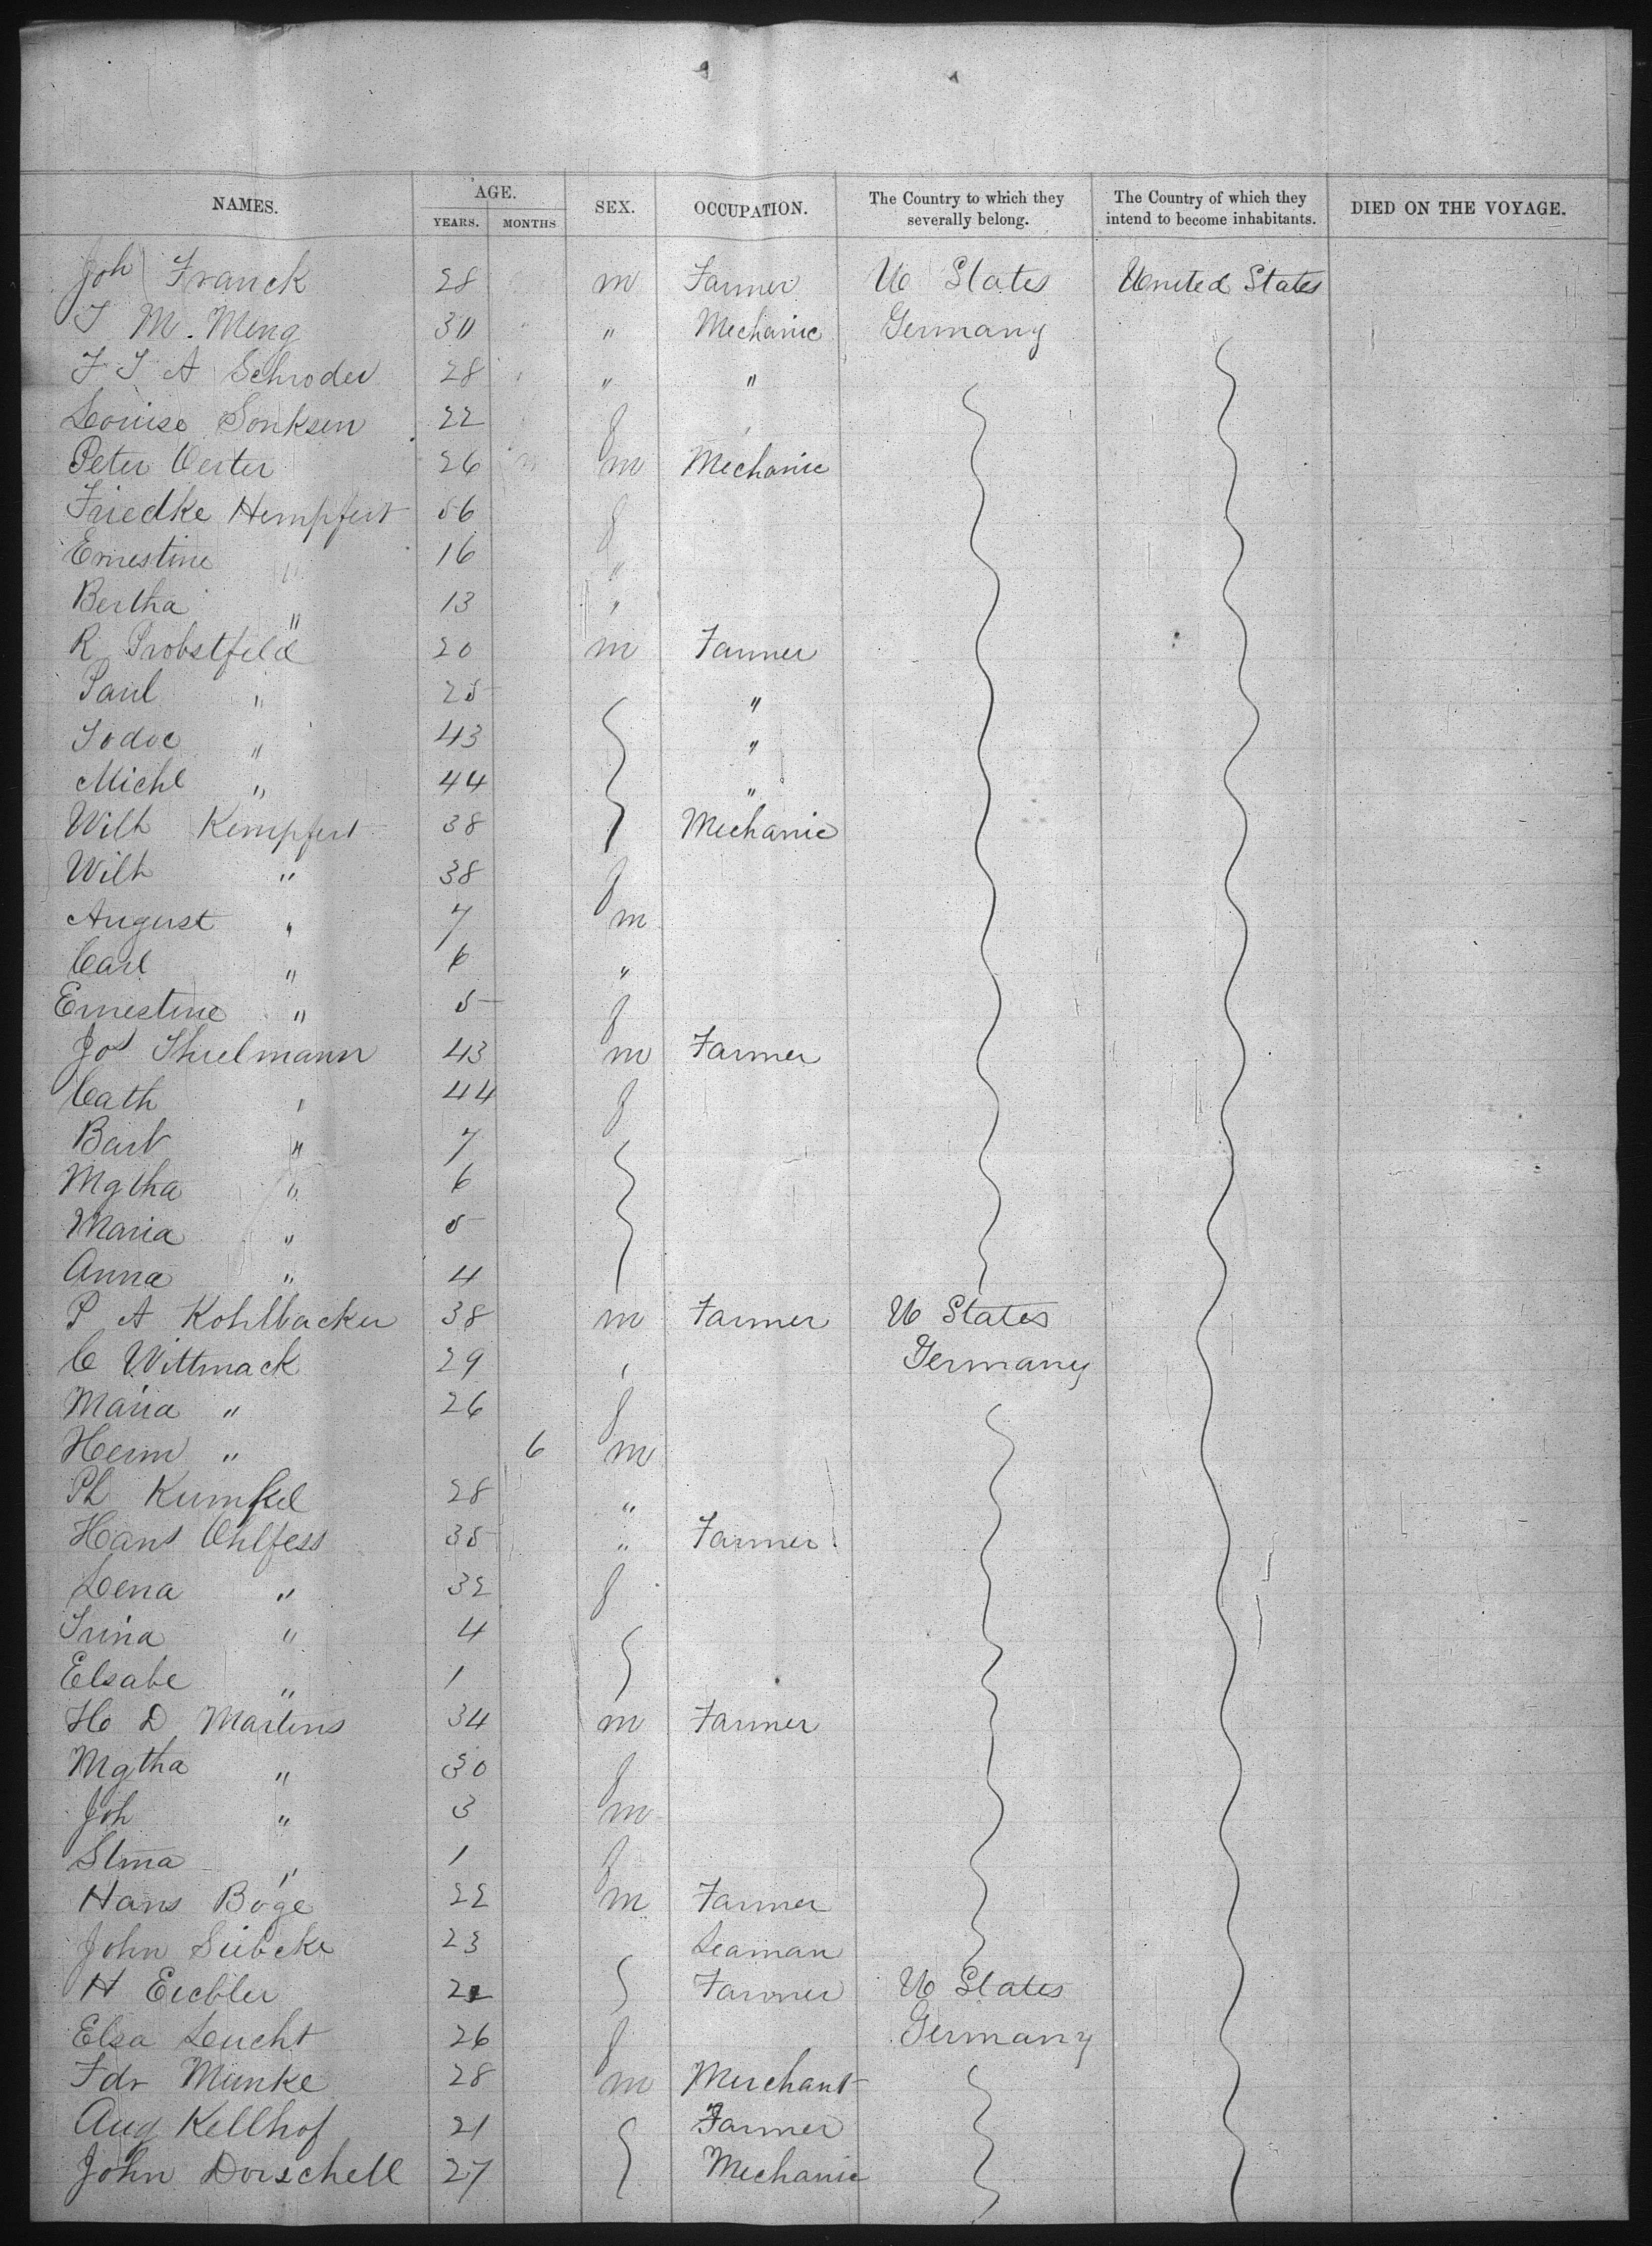 NAMES. AGE. SEX. OCCUPATION. The Country to which they severally belong. The Country of which they intend to become inhabitants. DIED ON THE VOYAGE.
YEARS. MONTHS
Joh Franck 28 m Farmer U States United States
J M. Meng 30 " Mechanic Germany
F J A Schroder 28 " "
Louise Sonksen 22 f
Peter Oerter 26 m Mechanic
Friedke Hempfert 56 f
Ernestine " 16 "
Bertha " 13 "
R Probstfeld 20 m Farmer
Paul " 25 "
Jodoc " 43 "
Michl " 44 "
Wilh Kempfert 38 Mechanic
Wilh " 38 f
August " 7 m
Carl " 6 "
Ernestine " 5 f
Jos Thielmann 43 m Farmer
Cath " 44 f
Barb " 7
Mgtha " 6
Maria " 5
Anna " 4
P A Kohlbacker 38 m Farmer U States
C Wittmack 29 " Germany
Maria " 26 f
Herm " 6 m
Ph 28 "
Hans Ohlfess 35 " Farmer
Lena " 32 f
Trina " 4
Elsabe " 1
H D Martens 34 m Farmer
Mgtha " 30 f
Joh " 3 m
" 1 f
Hans Böge 22 m Farmer
John Siebcke 23 Seaman
H 22 Farmer U States
Elsa Leucht 26 f Germany
Fdr Munke 28 m Merchant
Aug Kellhof 21 Farmer
John Dorschell 27 Mechanic